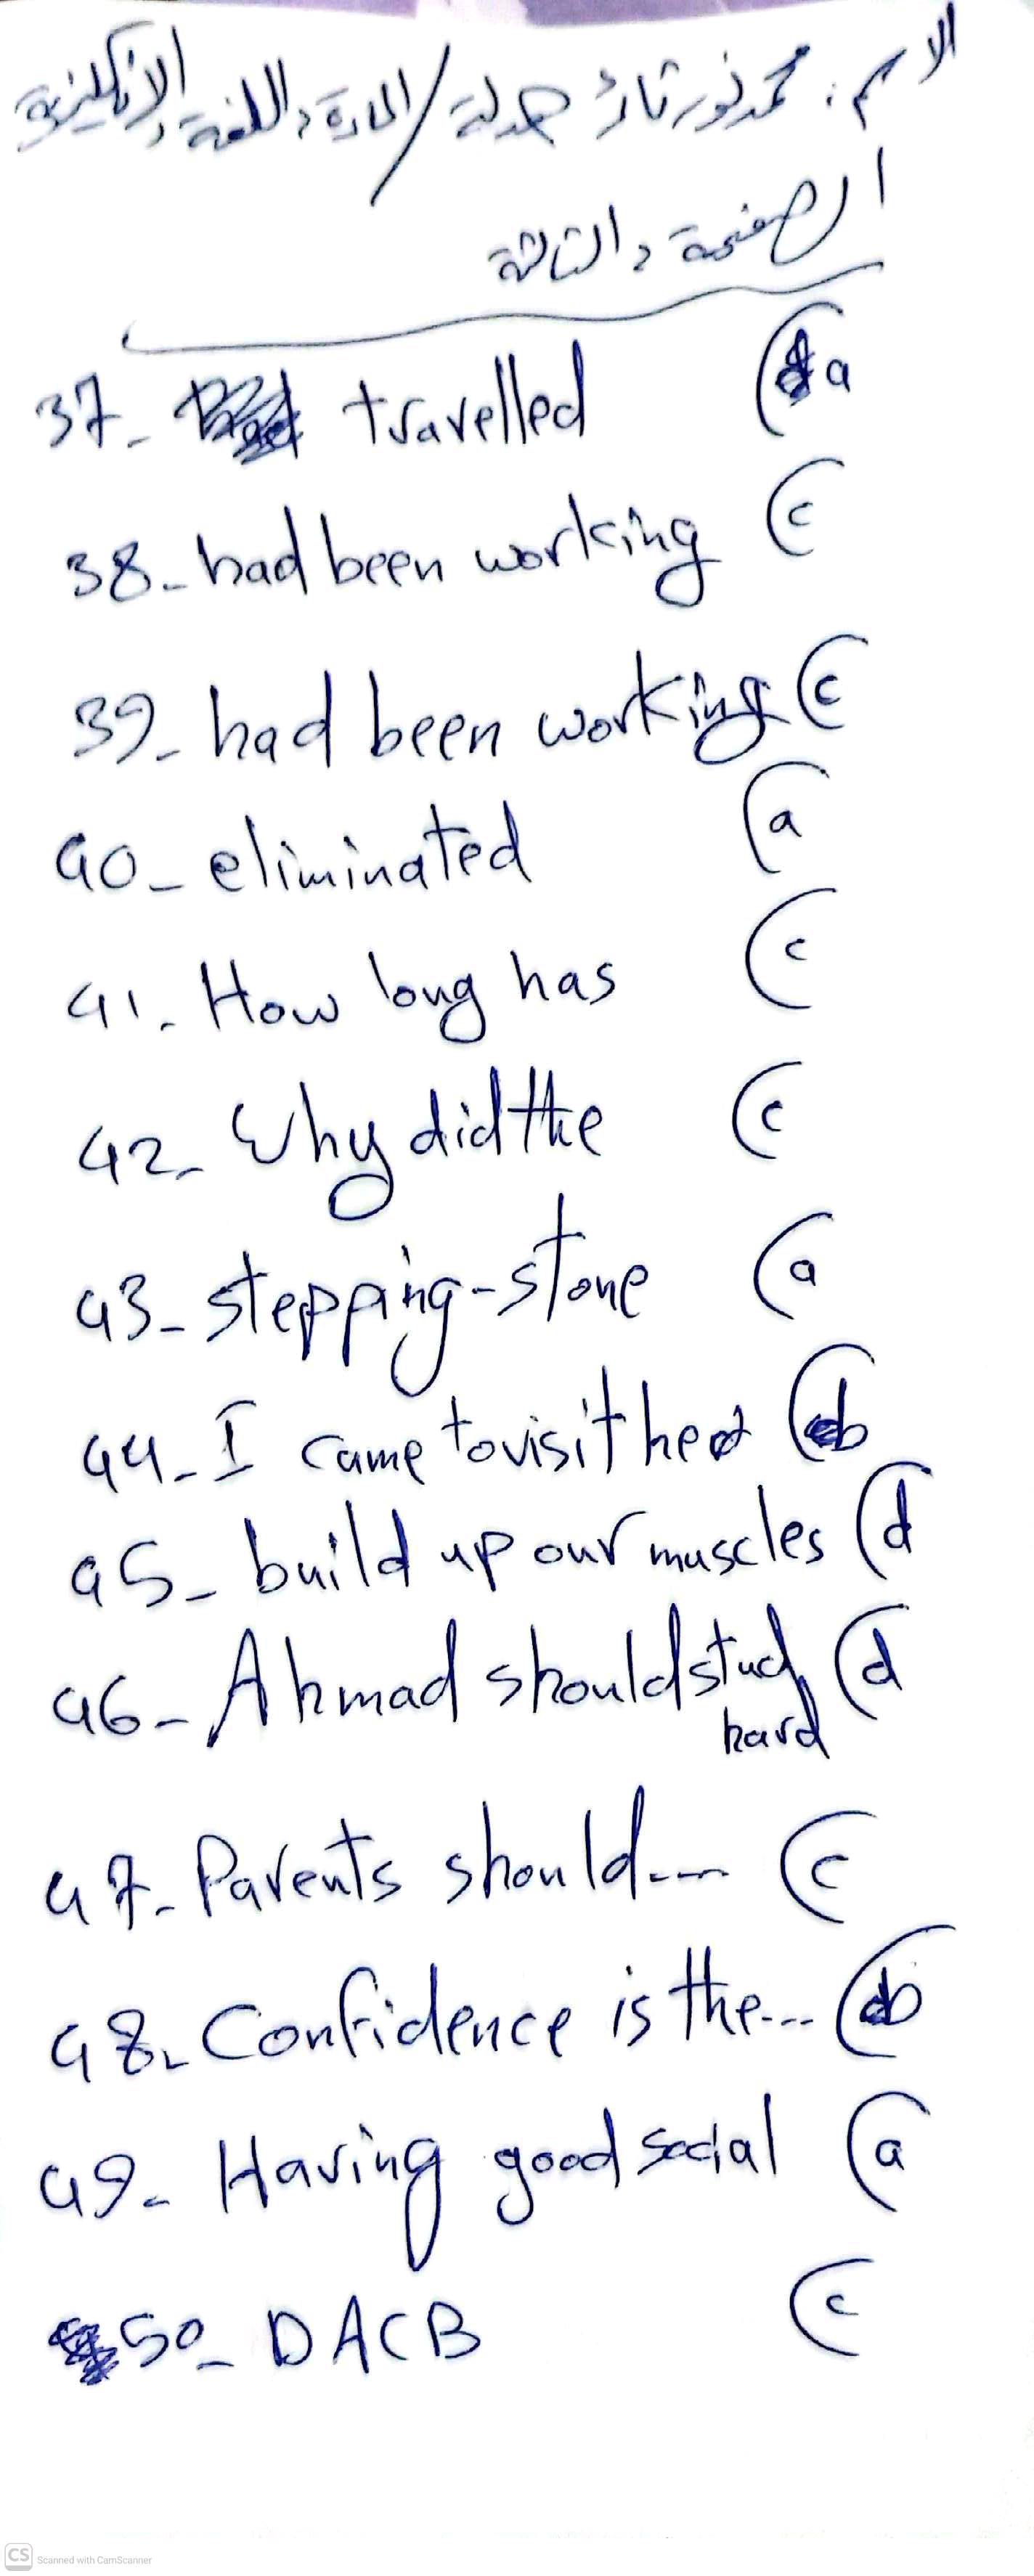 الاسم: محمد نور تائر / المادة: اللغة الإنكليزية
الصفحة: الثالثة
37- travelled (a
38- had been working (c
39- had been working (c
40- eliminated (a
41- How long has (c
42- Why did the (c
43- stepping-stone (a
44- I came to visit her (b
45- build up our muscles (d
46- Ahmad should stud (d
hard
47- Parents should... (c
48- Confidence is the... (b
49- Having good social (a
50- DACB (c
CS Scanned with CamScanner